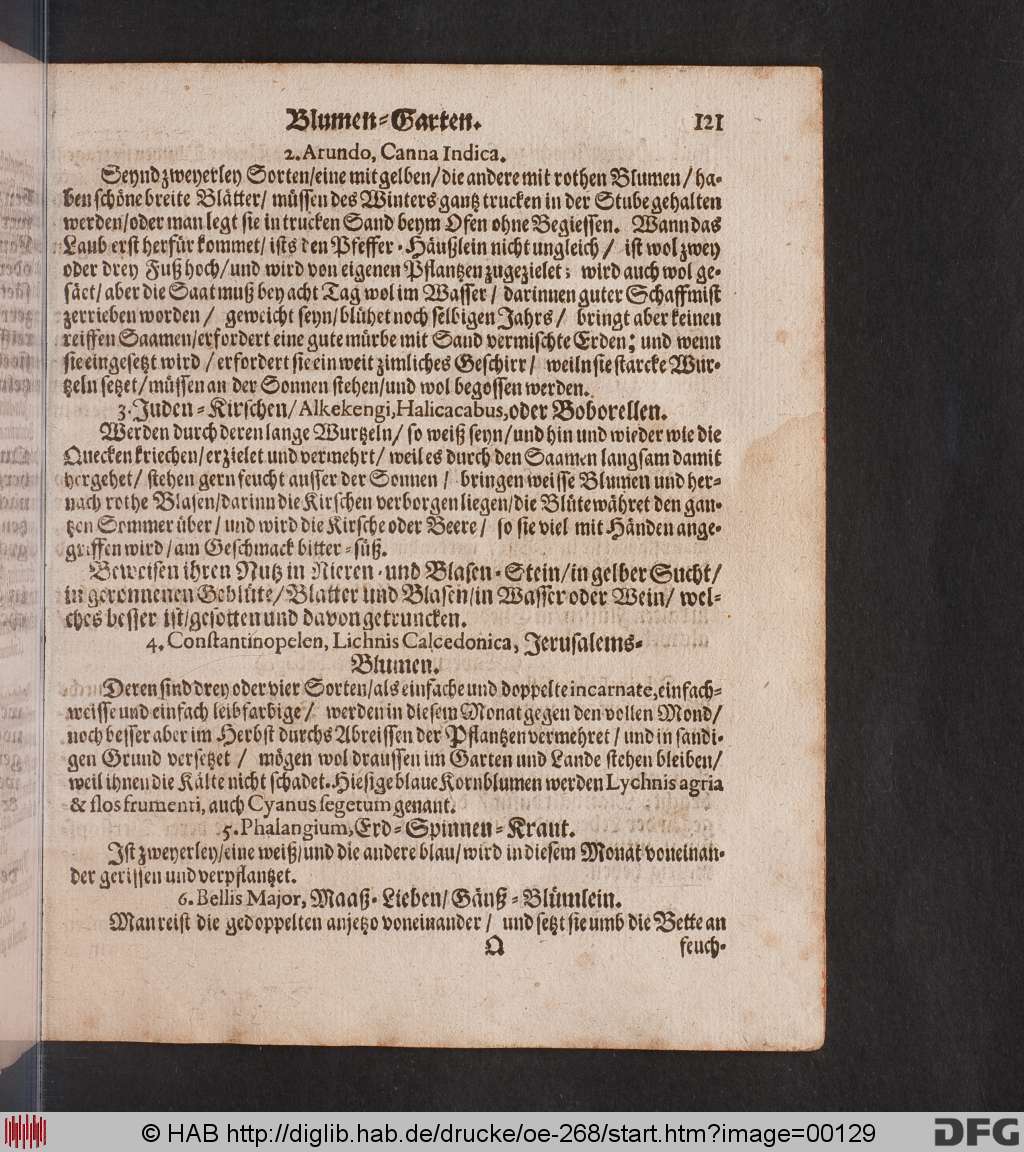 Blumen-Garten. 121
2. Arundo, Canna Indica.
Seynd zweyerley Sorten/eine mit gelben/die andere mit rothen Blumen/ ha-
ben schöne breite Blätter/ müssen des Winters gantz trucken in der Stube gehalten
werden/oder man legt sie in trucken Sand beym Ofen ohne Begiessen. Wann das
Laub erst herfür kommet/ ists den Pfeffer-Häußlein nicht ungleich/ ist wol zwey
oder drey Fuß hoch/und wird von eigenen Pflantzen zugezielet; wird auch wol ge-
säet/aber die Saat muß bey acht Tag wol im Wasser/ darinnen guter Schaffmist
zerrieben worden/ geweicht seyn/blühet noch selbigen Jahrs/ bringt aber keinen
reiffen Saamen/erfordert eine gute mürbe mit Sand vermischte Erden; und wenn
sie eingesetzt wird/erfordert sie ein weit zimliches Geschirr/ weiln sie starcke Wur-
tzeln setzet/müssen an der Sonnen stehen/und wol begossen werden.
3. Juden-Kirschen/Alkekengi,Halicacabus,oder Boborellen.
Werden durch deren lange Wurtzeln/ so weiß seyn/und hin und wieder wie die
Quecken kriechen/erzielet und vermehrt/ weil es durch den Saamen langsam damit
hergehet/ stehen gern feucht ausser der Sonnen/ bringen weisse Blumen und her-
nach rothe Blasen/darinn die Kirschen verborgen liegen/die Blüte währet den gan-
tzen Sommer über/ und wird die Kirsche oder Beere/ so sie viel mit Händen ange-
griffen wird/am Geschmack bitter-süß.
Beweisen ihren Nutz in Nieren-und Blasen-Stein/in gelber Sucht/
in geronnenen Geblüte/Blatter und Blasen/in Wasser oder Wein/ wel-
ches besser ist/gesotten und davon getruncken.
4. Constantinopelen, Lichnis Calcedonica, Jerusalems-
Blumen.
Deren sind drey oder vier Sorten/als einfache und doppelte incarnate,einfach-
weisse und einfach leibfarbige/ werden in diesem Monat gegen den vollen Mond/
noch besser aber im Herbst durchs Abreissen der Pflantzen vermehret/und in sandi-
gen Grund versetzet/ mögen wol draussen im Garten und Lande stehen bleiben/
weil ihnen die Kälte nicht schadet. Hiesige blaue Kornblumen werden Lychnis agria
& flos frumenti, auch Cyanus segetum genant.
5. Phalangium,Erd-Spinnen-Kraut.
Ist zweyerley/eine weiß/und die andere blau/wird in diesem Monat voneinan-
der gerissen und verpflantzet.
6. Bellis Major, Maaß-Lieben/Gänß-Blümlein.
Man reist die gedoppelten anjetzo voneinander/ und setzt sie umb die Bette an
Q feuch-
© HAB http://diglib.hab.de/drucke/oe-268/start.htm?image=00129
DFG